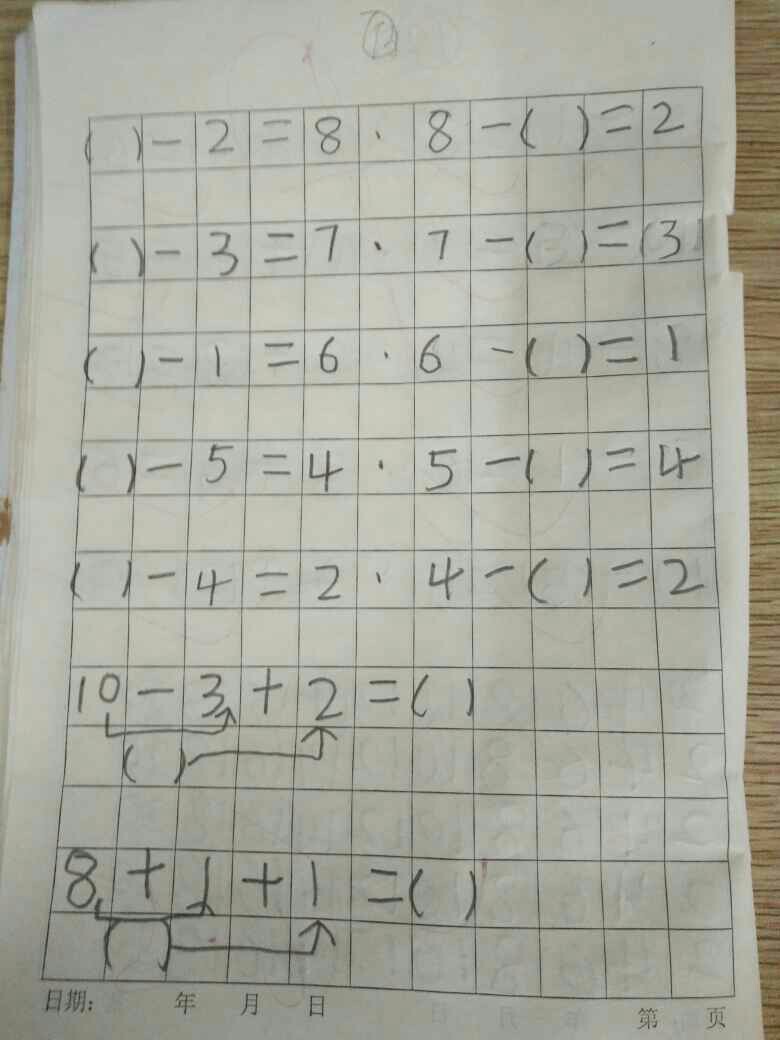 ( ) - 2 = 8 · 8 - ( ) = 2
( ) - 3 = 7 · 7 - ( ) = 3
( ) - 1 = 6 · 6 - ( ) = 1
( ) - 5 = 4 · 5 - ( ) = 4
( ) - 4 = 2 · 4 - ( ) = 2
10 - 3 + 2 = ( )
( )
8 + 1 + 1 = ( )
( )
日期: 年 月 日 第 页